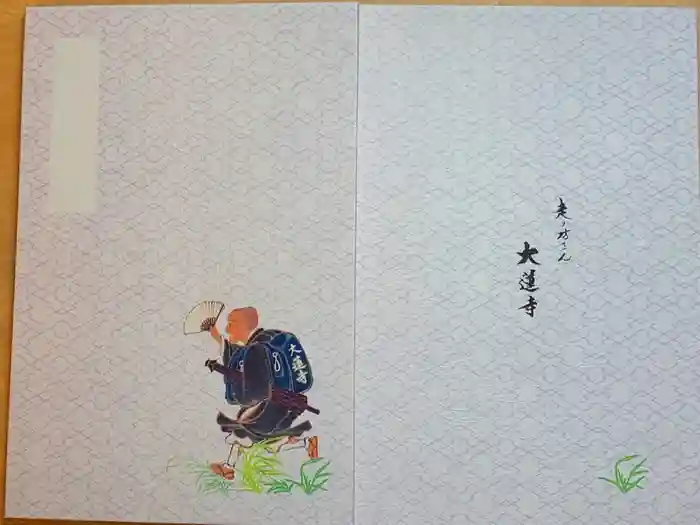 走り坊さん
大蓮寺
大蓮寺